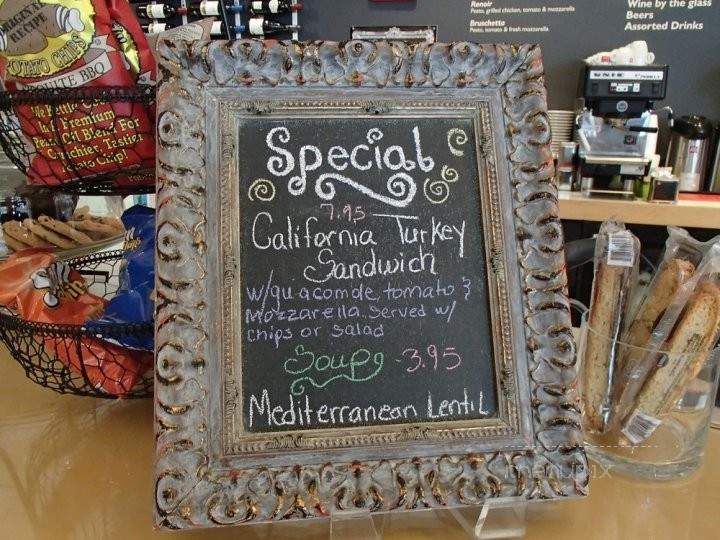 Renoir
Pesto, grilled chicken, tomato & mozzarella
Bruschetta
Pesto, tomato & fresh mozzarella
Wine by the glass
Beers
Assorted Drinks
ORIGINAL
RECIPE
POTATO CHIPS
BBQ
Premium
Oil Blend For
Crunchier, Tastier
Potato Chip!
Special
7.95
California Turkey
Sandwich
w/guacomole, tomato &
Mozzarella. Served w/
chips or salad
Soup, -3.95
Mediterranean Lentil
menupix